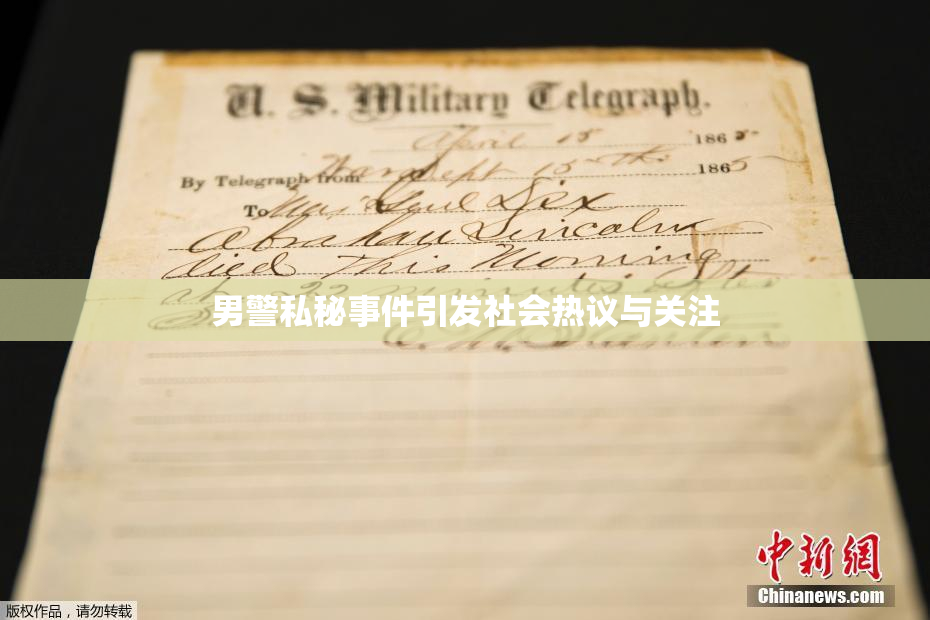 U. S. Military Telegraph.
April 15 1865
By Telegraph from War Dept 15th 1865
To Maj Genl Dix
Abraham Lincoln
died This Morning
at 22 minutes after
男警私秘事件引发社会热议与关注
中新网
Chinanews.com
版权作品，请勿转载